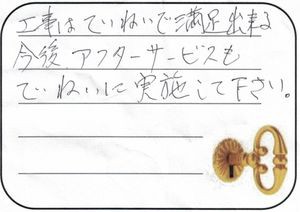 工事はていねいで満足出来る
今後、アフターサービスも
ていねいに実施して下さい。